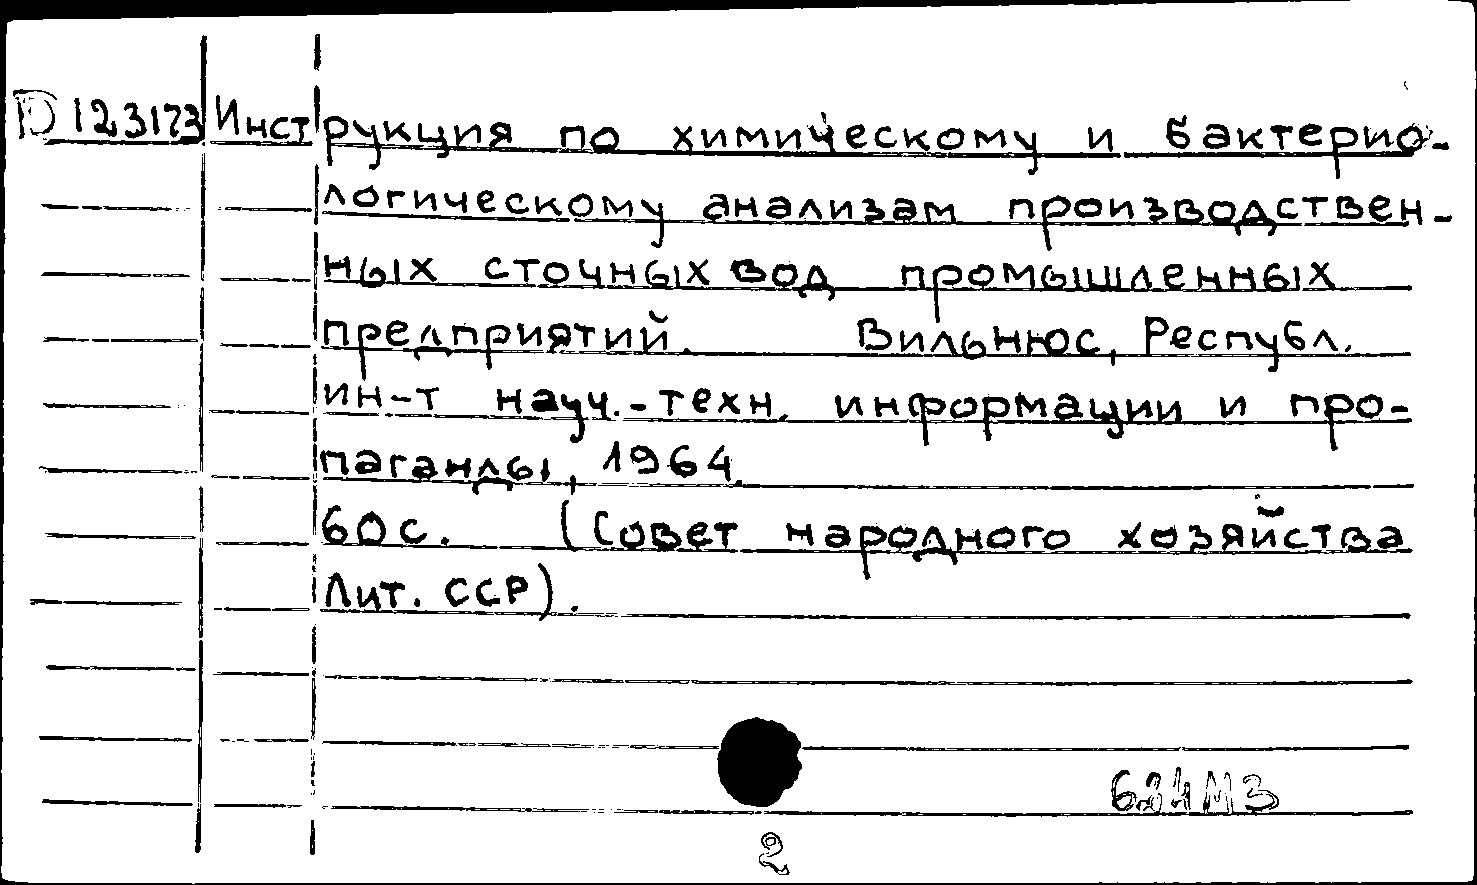 D 123173 Инструкция по химическому и бактерио-
логическому анализам производствен-
ных сточных вод промышленных
предприятий. Вильнюс, Республ.
ин-т науч.-техн. информации и про-
паганды, 1964.
60 с. (Совет народного хозяйства
Лит. ССР).
2